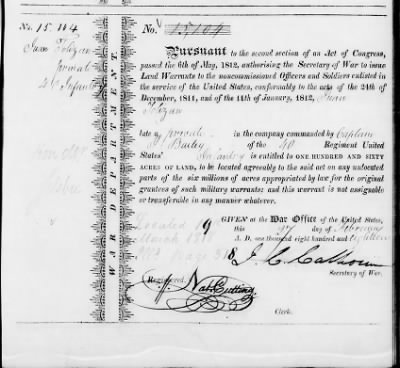 No. 15.104
No. 15,104
Juan Tolizan
WAR DEPARTMENT.
Pursuant to the second section of an Act of Congress,
passed the 6th of May, 1812, authorising the Secretary of War to issue
Land Warrants to the noncommissioned Officers and Soldiers enlisted in
the service of the United States, conformably to the acts of the 24th of
December, 1811, and of the 11th of January, 1812, Juan
Tolizan
late a private in the company commanded by Captain
Bailey of the 40 Regiment United
States' Infantry is entitled to ONE HUNDRED AND SIXTY
ACRES OF LAND, to be located agreeably to the said act on any unlocated
parts of the six millions of acres appropriated by law for the original
grantees of such military warrants; and this warrant is not assignable
or transferable in any manner whatever.
Located 19
March 1818
Page 38
GIVEN at the War Office of the United States,
this 27 day of February
A. D. one thousand eight hundred and eighteen
J. C. Calhoun
Secretary of War.
Registered
Nat. Cutting
Clerk.